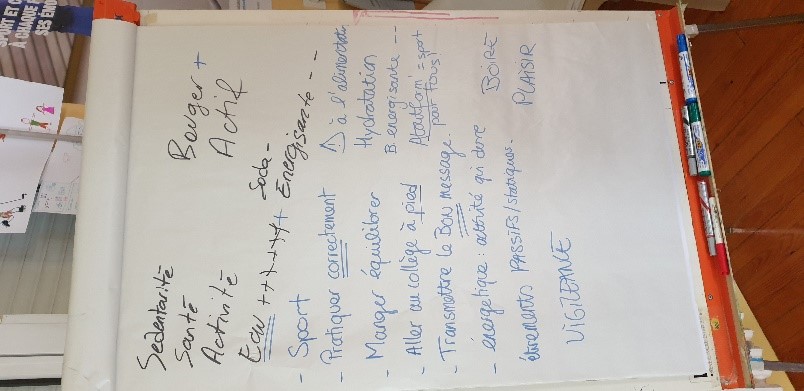 SPORT ET
À CHAQUE
SES ÉMO
Sédentarité Bouger +
Santé Actif
Activité
Eau +++++++ Soda -
+ Energisante - -
- Sport
- Pratiquer correctement ⚠ à l'alimentation
- Manger équilibrer Hydratation
- Aller au collège à pied B. energisante --
- Transmettre le Bon message. = sport pour tous!
- énergétique : activité qui dure BOIRE
étirements PASSIFS/statiques. PLAISIR
VIGILANCE